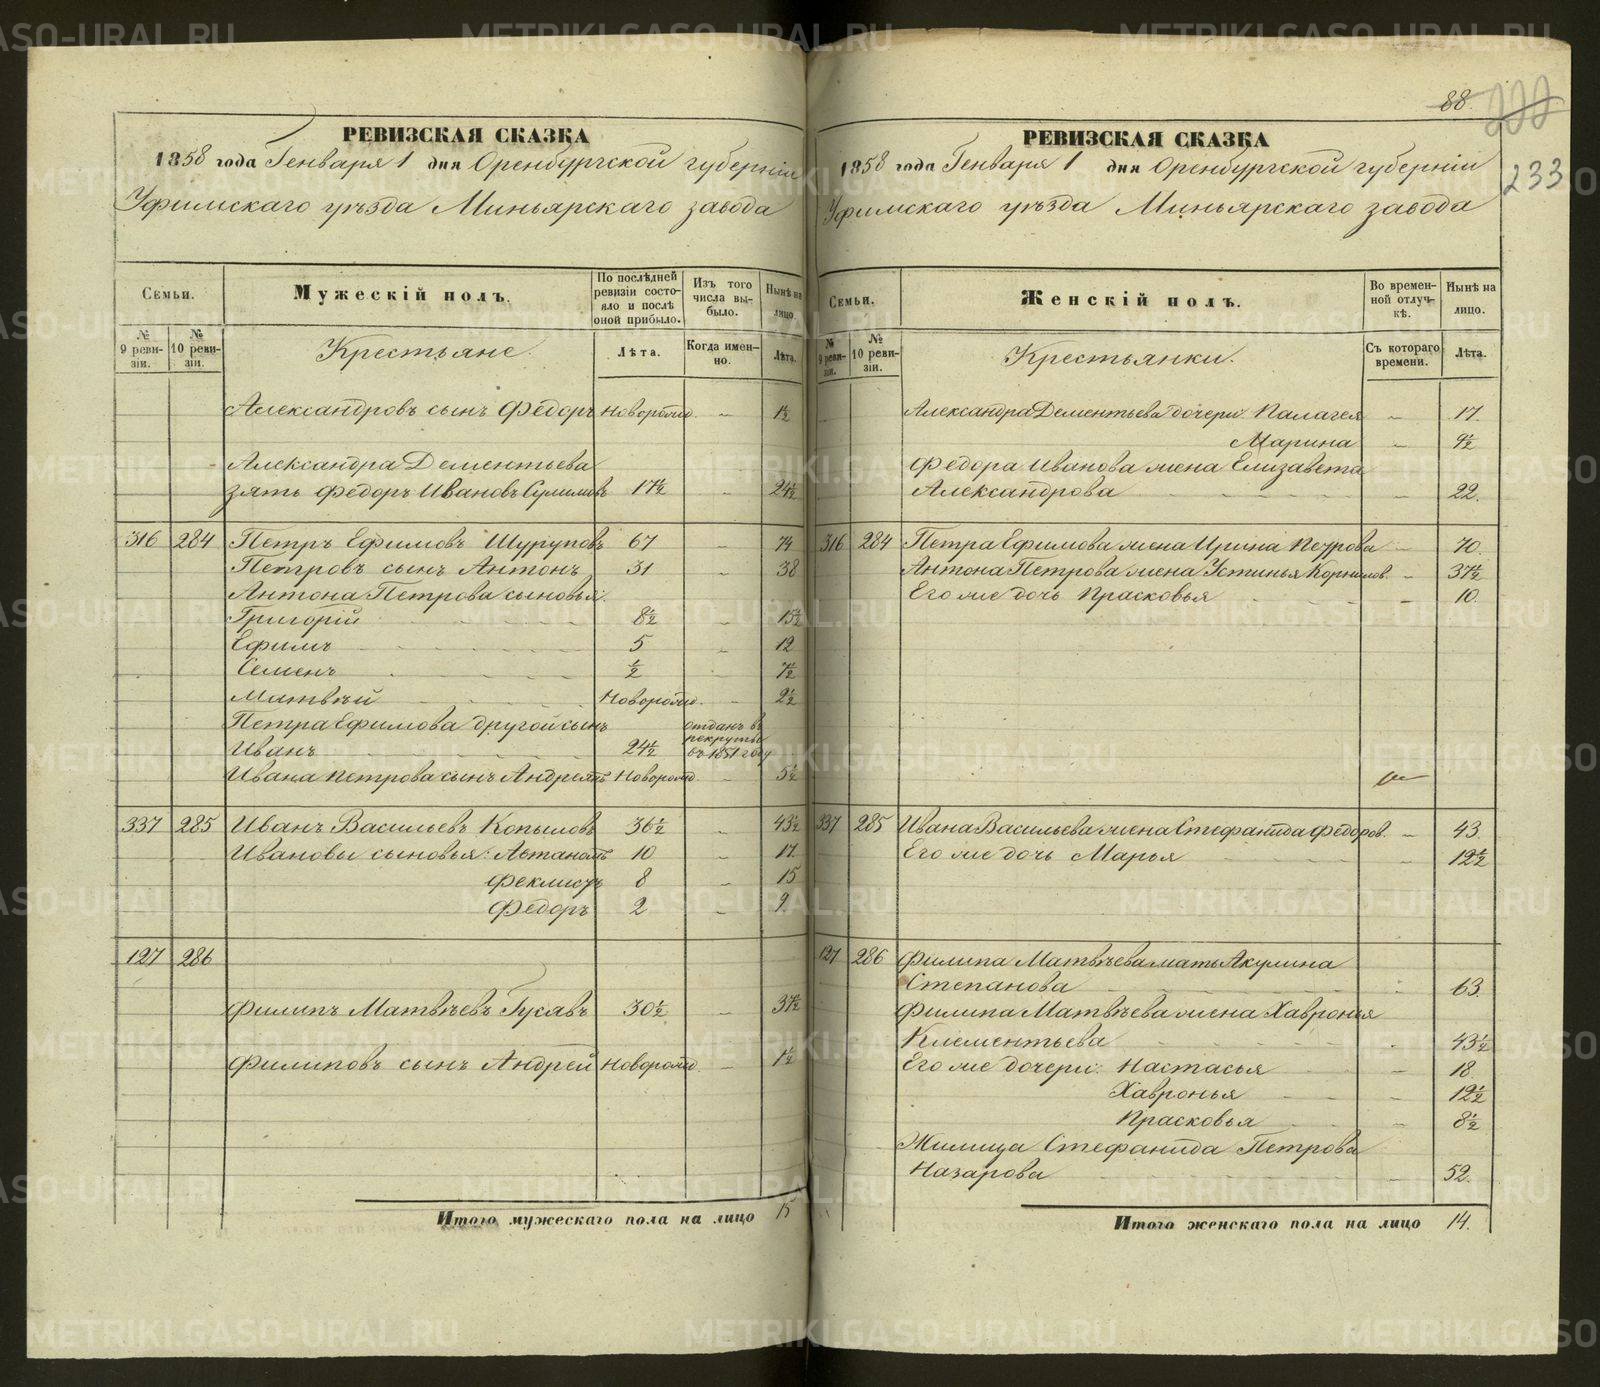 РЕВИЗСКАЯ СКАЗКА
1858 года Генваря 1 дня Оренбургской губерніи
Уфимскаго уѣзда Миньярскаго завода
Семьи.
Мужескій полъ.
По послѣдней ревизіи состояло и послѣ оной прибыло.
Изъ того числа выбыло.
Нынѣ на лицо.
№ 9 ревизіи.
№ 10 ревизіи.
Крестьяне.
Лѣта.
Когда именно.
Лѣта.
Александровъ сынъ Федоръ новорожд. - 1½
Александра Дементьева
зять Федоръ Ивановъ 17½ - 24½
316 284 Петръ Ефимовъ Шуруповъ 67 - 74
Петровъ сынъ Антонъ 31 - 38
Антона Петрова сыновья:
Григорій 8½ - 15½
Ефимъ 5 - 12
Семенъ ½ - 7½
Матвѣй новорожд. - 2½
Петра Ефимова другой сынъ
Иванъ 24½ отданъ въ рекруты въ 1851 году
Ивана Петрова сынъ Андреянъ новорожд. - 5½
337 285 Иванъ Васильевъ Копыловъ 36½ - 43½
Ивановы сыновья: Автаномъ 10 - 17
Феклистъ 8 - 15
Федоръ 2 - 9
127 286
Филипъ Матвѣевъ Гусявъ 30½ - 37½
Филиповъ сынъ Андрей новорожд. - 1½
Итого мужескаго пола на лицо 15
88.
222
233
РЕВИЗСКАЯ СКАЗКА
1858 года Генваря 1 дня Оренбургской губерніи
Уфимскаго уѣзда Миньярскаго завода
Семьи.
Женскій полъ.
Во временной отлучкѣ.
Нынѣ на лицо.
№ 9 ревизіи.
№ 10 ревизіи.
Крестьянки.
Съ котораго времени.
Лѣта.
Александра Дементьева дочери: Палагея - 17.
Марина - 9½
Федора Иванова жена Елизавета
Александрова - 22.
316 284 Петра Ефимова жена Ирина Петрова - 70.
Антона Петрова жена Устинья Корнилов. - 37½
Его же дочь Прасковья - 10.
337 285 Ивана Васильева жена Стефанида Федоров. - 43.
Его же дочь Марья - 12½
127 286 Филипа Матвѣева мать Акулина
Степанова 63.
Филипа Матвѣева жена Хавронья
Клементьева - 43½
Его же дочери: Настасья - 18.
Хавронья - 12½
Прасковья - 8½
Жилица Стефанида Петрова
Назарова - 52.
Итого женскаго пола на лицо 14.
METRIKI.GASO-URAL.RU